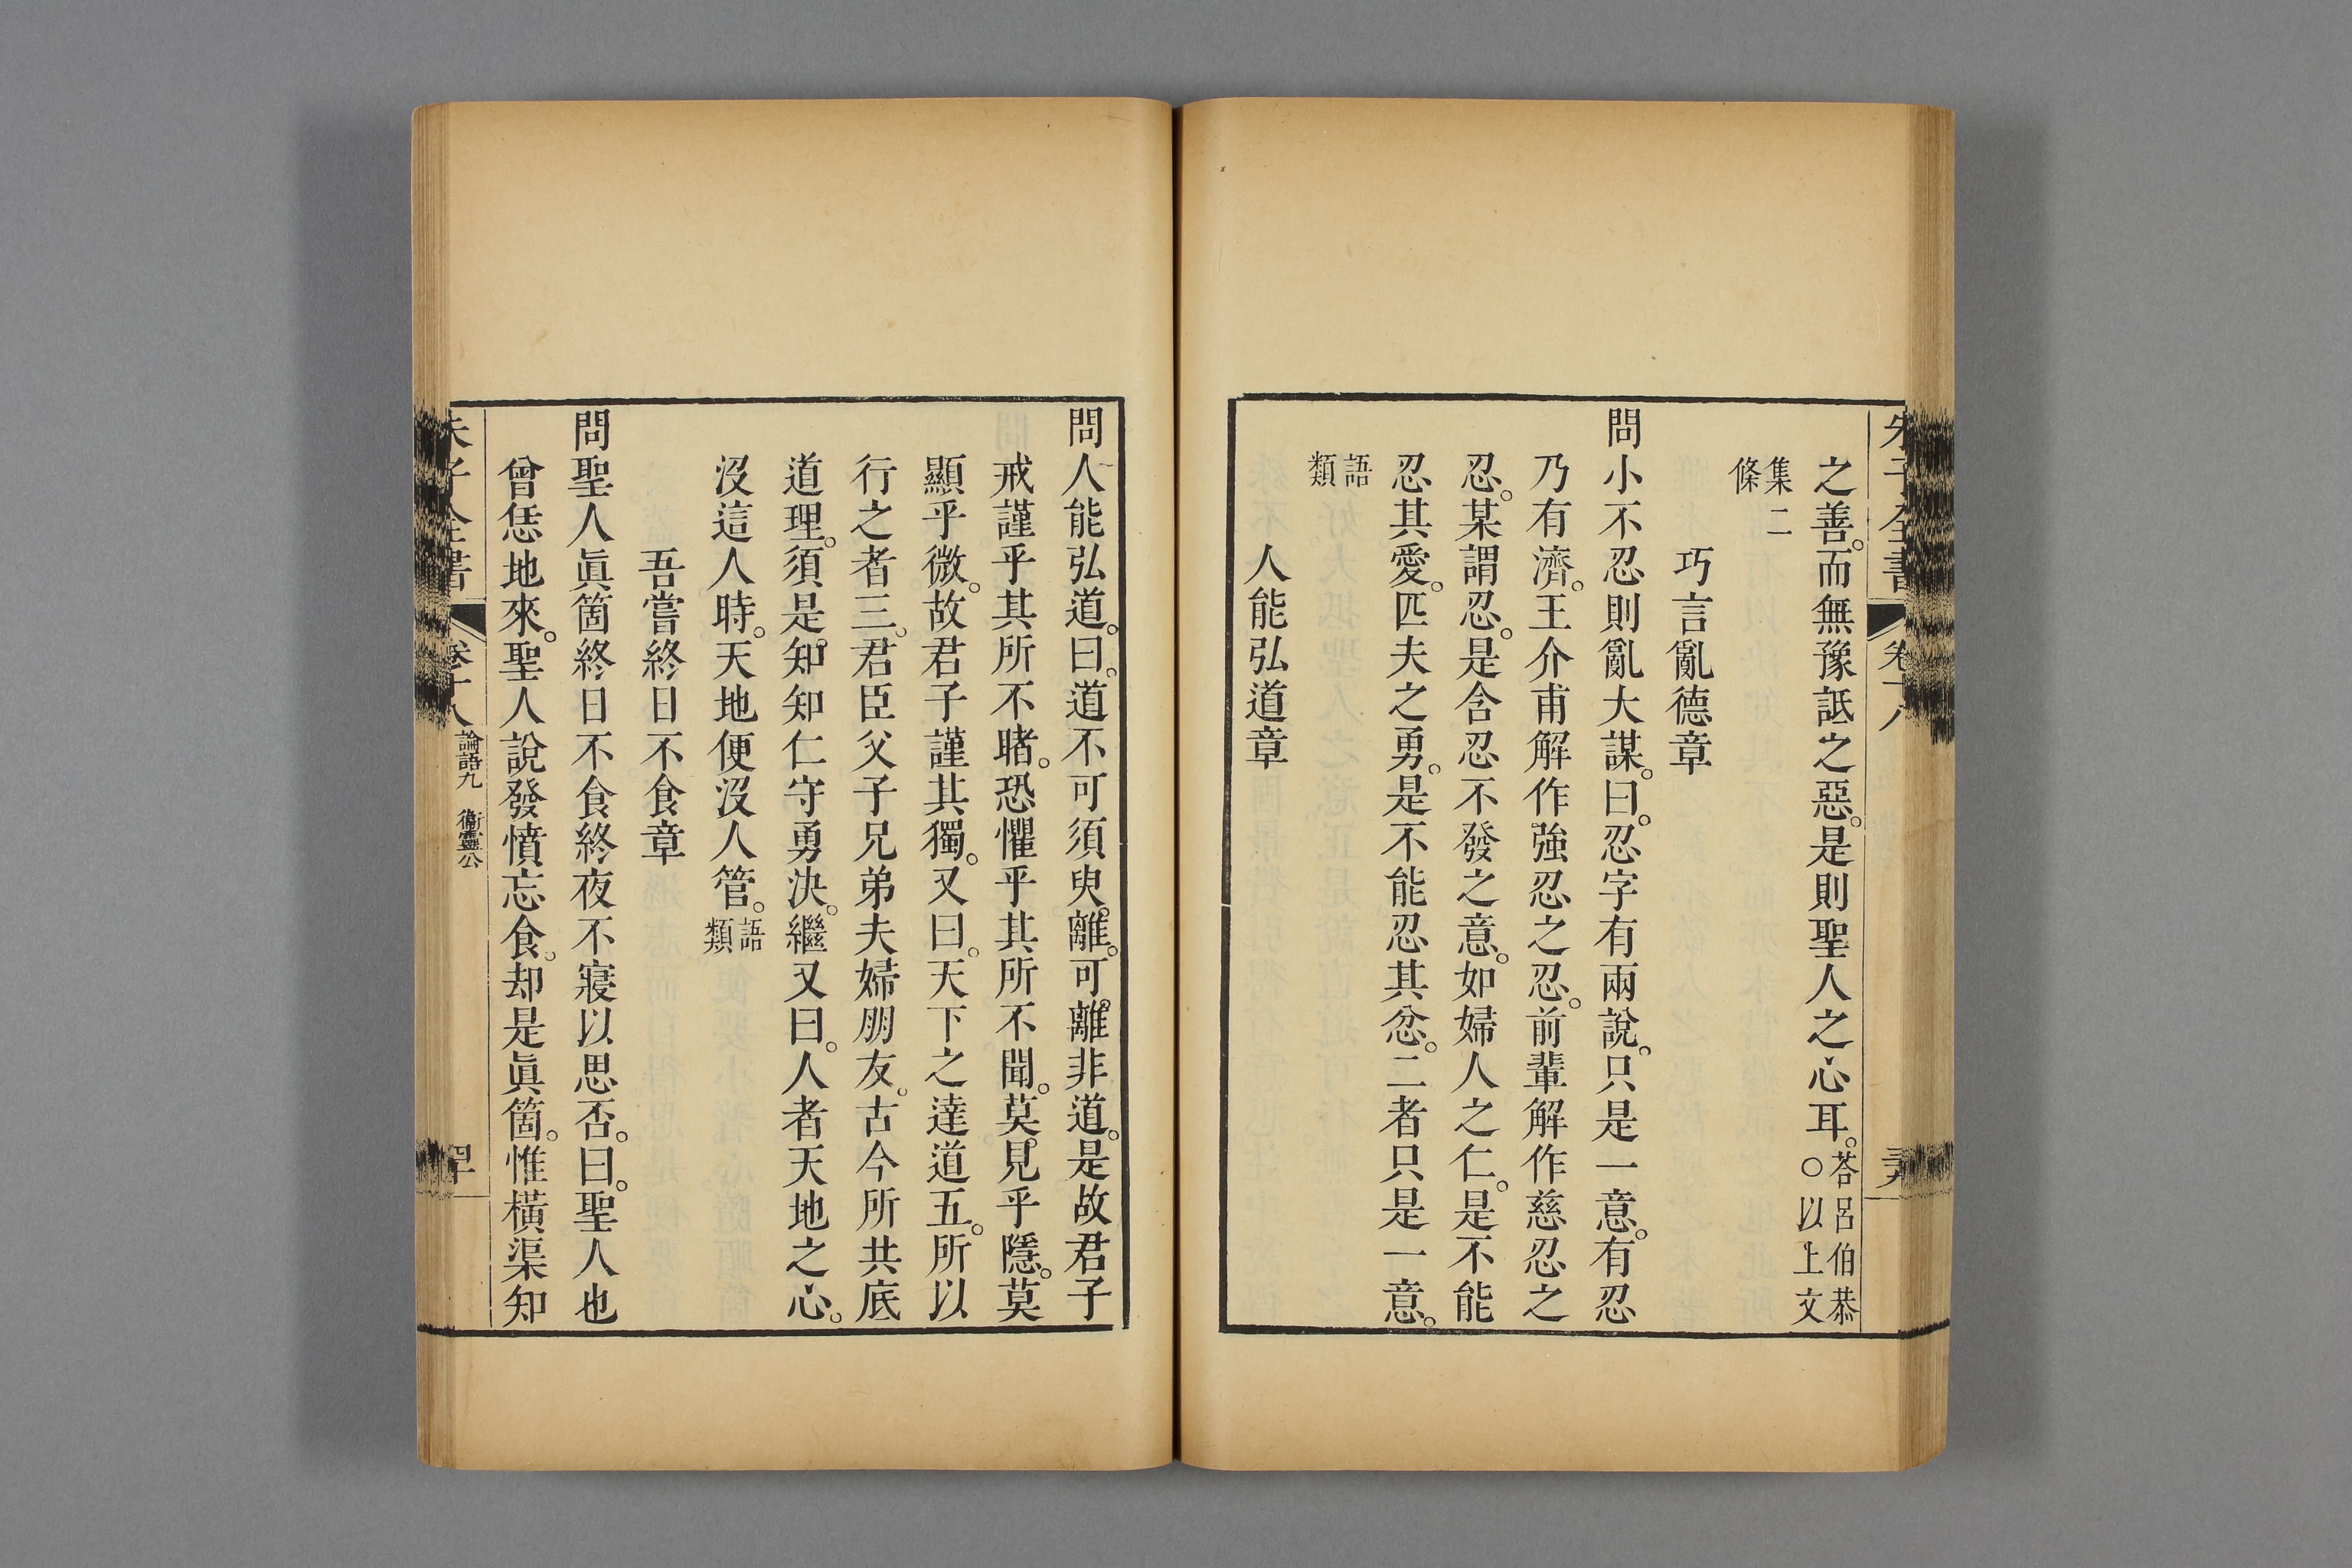 之善。而無豫詆之惡。是則聖人之心耳。荅呂伯恭○以上文
集二條
巧言亂德章
問小不忍則亂大謀。曰。忍字有兩說。只是一意。有忍
乃有濟。王介甫解作強忍之忍。前輩解作慈忍之
忍。某謂忍。是含忍不發之意。如婦人之仁。是不能
忍其愛。匹夫之勇。是不能忍其忿。二者只是一意。
語類
人能弘道章
問人能弘道。曰。道不可須臾離。可離非道。是故君子
戒謹乎其所不睹。恐懼乎其所不聞。莫見乎隱。莫
顯乎微。故君子謹其獨。又曰。天下之達道五。所以
行之者三。君臣父子兄弟夫婦朋友。古今所共底
道理。須是知知仁守勇決。繼又曰。人者天地之心。
沒這人時。天地便沒人管。語類
吾嘗終日不食章
問聖人眞箇終日不食終夜不寢以思否。曰。聖人也
曾恁地來。聖人說發憤忘食。却是眞箇。惟橫渠知
朱子全書 卷十八 論語九 衞靈公